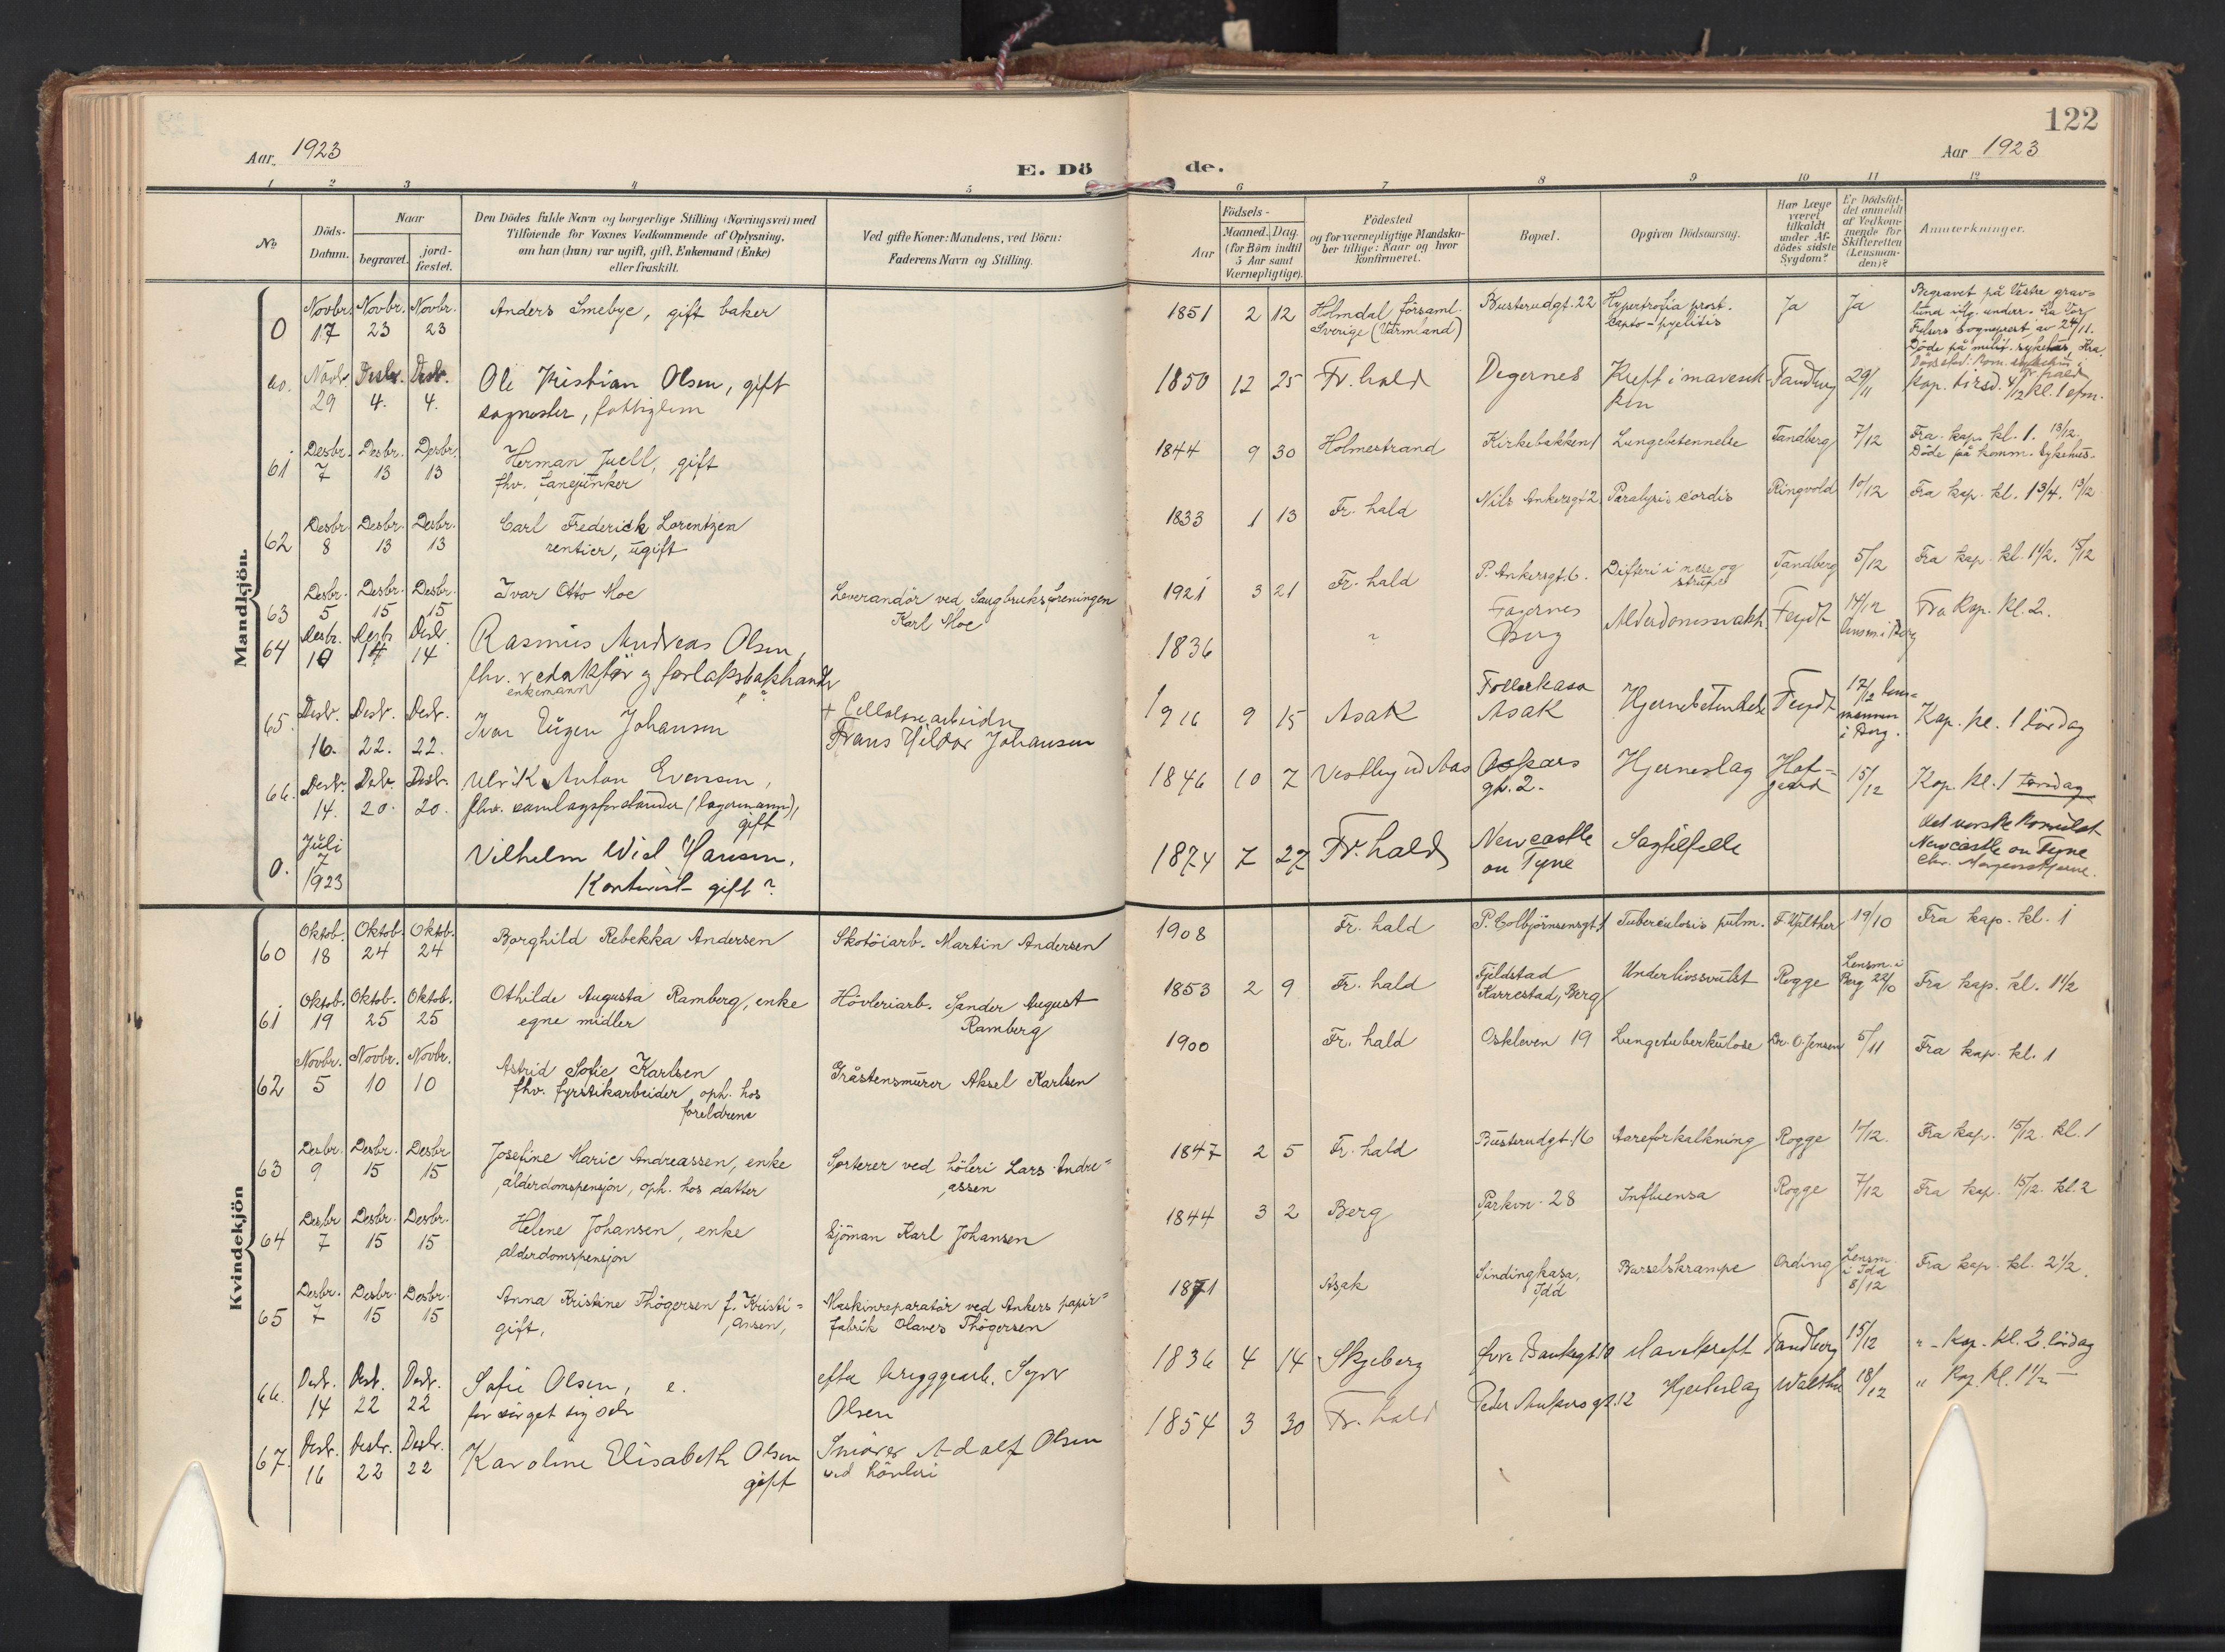 122
Aar. 1923
E. Dö de.
Aar 1923
1 2 3 4 5 6 7 8 9 10 11 12
No.
Döds-
Datum.
Naar
begravet.
jord-
fæstet.
Den Dödes fulde Navn og borgerlige Stilling (Næringsvei) med
Tilföiende for Voxnes Vedkommende af Oplysning,
om han (hun) var ugift, gift, Enkemand (Enke)
eller fraskilt.
Ved gifte Koner: Mandens, ved Börn:
Faderens Navn og Stilling.
Födsels-
Aar
Maaned. Dag.
(for Börn indtil
5 Aar samt
Værnepligtige).
Födested
og for værnepligtige Mandska-
ber tillige: Naar og hvor
konfirmeret.
Bopæl.
Opgiven Dödsaarsag.
Har Læge
været
tilkaldt
under Af-
dödes sidste
Sygdom?
Er Dödsfal-
det anmeldt
af Vedkom-
mende for
Skifteretten
(Lensman-
den)?
Anmærkninger.
Mandkjön.
0 Novbr. 17 Novbr. 23 Novbr. 23
Anders Smebye, gift baker
1851 2 12 Holmdal församl.
Sverige (Värmland)
Busterudgt. 22
Hypertrofia prost.
Ja Ja
Begravet på Vestre grav=
60. Novbr. 29 Desbr. 4. Desbr. 4.
Ole Kristian Olsen, gift
1850 12 25 Fr.hald Degernes
Kreft i mavesek-
ken
Tandberg 29/11
Kap. tirsd. 4/12 kl. 1 efm.
61 Desbr. 7 Desbr. 13 Desbr. 13
Herman Juell, gift
fhv. fanejunker
1844 9 30 Holmestrand Kirkebakken 1 Lungebetennelse Tandberg 7/12
Fra kap. kl. 1. 13/12.
Döde på komm. sykehus.
62 Desbr. 8 Desbr. 13 Desbr. 13
Carl Frederick Lorentzen
rentier, ugift
1833 1 13 Fr. hald Nils Ankersgt 2 Paralysis cordis Ringvold 10/12 Fra kap. kl. 1 3/4. 13/12
63 Desbr. 5 Desbr. 15 Desbr. 15
Ivar Otto Moe
Leverandör ved Saugbruksforeningen
Karl Moe
1921 3 21 Fr. hald P. Ankersgt. 6. Difteri i nese og
strupe
Tandberg 5/12 Fra kap. kl. 1 1/2. 15/12
64 Desbr. 10 Desbr. 14 Desbr. 14
Rasmus Andreas Olsen,
fhv. redaktör og forlaksbokhandler
enkemann ?
1836 ? Fagernes
Berg
Alderdomssvakh. Feydt 14/12
lensm. i Berg
Fra Kap. kl. 2.
65. Desbr. 16. Desbr. 22. Desbr. 22.
Ivar Eugen Johansen
+ Cellulosearbeider
Frans Hildor Johansen
1916 9 15 Asak
Asak
Hjernebetendelse Feydt 17/12 lens=
mannen
i Berg.
Kap. kl. 1 lördag
66. Desbr. 14. Desbr. 20. Desbr. 20.
Ulrik Anton Evensen,
fhv. samlagsforstander (lagermann),
gift
1846 10 7 Vestby ved Aas Oskars
gt. 2.
Hjerneslag Hof-
gaard
15/12 Kap. kl. 1 torsdag
0. Juli 7 1923
Vilhelm Wiel Hansen,
Kontorist gift?
1874 7 27 Fr. hald Newcastle
on Tyne
det norske konsulat
Newcastle on Tyne
Kvindekjön
60 Oktob. 18 Oktob. 24 Oktob. 24
Borghild Rebekka Andersen
Skotöiarb. Martin Andersen
1908 Fr. hald P. Colbjörnsensgt. 1 Tuberculosis pulm. F. Walther 19/10 Fra kap. kl. 1
61 Oktob. 19 Oktob. 25 Oktob. 25
Othilde Augusta Ramberg, enke
egne midler
Hövleriarb. Sander August
Ramberg
1853 2 9 Fr. hald Fjeldstad
Karrestad, Berg
Underlivssvulst Rogge Lensm. i
Berg 22/10
Fra kap. kl. 1 1/2
62 Novbr. 5 Novbr. 10 Novbr. 10
Astrid Sofie Karlsen
fhv. fyrstikarbeider, oph. hos
foreldrene
Gråstensmurer Aksel Karlsen
1900 Fr. hald Oskleven 19 Lungetuberkulose Dr. O. Jensen 5/11 Fra kap. kl. 1
63 Desbr. 9 Desbr. 15 Desbr. 15
Josefine Marie Andreassen, enke
alderdomspensjon, oph. hos datter
Sorterer ved höleri Lars Andre=
assen
1847 2 5 Fr. hald Busterudgt. 16 Aareforkalkning Rogge 11/12. Fra kap. 15/12. kl. 1
64 Desbr. 7 Desbr. 15 Desbr. 15
Helene Johansen, enke
alderdomspensjon
Sjöman Karl Johansen
1844 3 2 Berg Parkvn. 28 Influensa Rogge 7/12 Fra kap. 15/12. kl. 2
65 Desbr. 7 Desbr. 15 Desbr. 15
Anna Kristine Thögersen f. Kristi=
ansen,
gift,
Maskinreparatör ved Ankers papir=
fabrik Olaves Thögersen
1871 Asak Sindingkasa,
Idd
Barselskrampe Ording Lensm.
i Idd
8/12
Fra kap. kl. 2 1/2.
66. Desbr. 14 Desbr. 22 Desbr. 22
Sofie Olsen, e.
forsörget sig selv
efter bryggearb. Syver
Olsen
1836 4 14 Skjeberg Övre Bankegt. 10 Mavekreft Tandberg 15/12 " - Kap. kl. 2 lördag
67. Desbr. 16 Desbr. 22 Desbr. 22
Karoline Elisabeth Olsen
gift
Smörer Adolf Olsen
ved hövleri
1854 3 30 Fr. hald Peder Ankers gt. 12 Hjerteslag Walther 18/12 " Kap. kl. 1 1/2 —